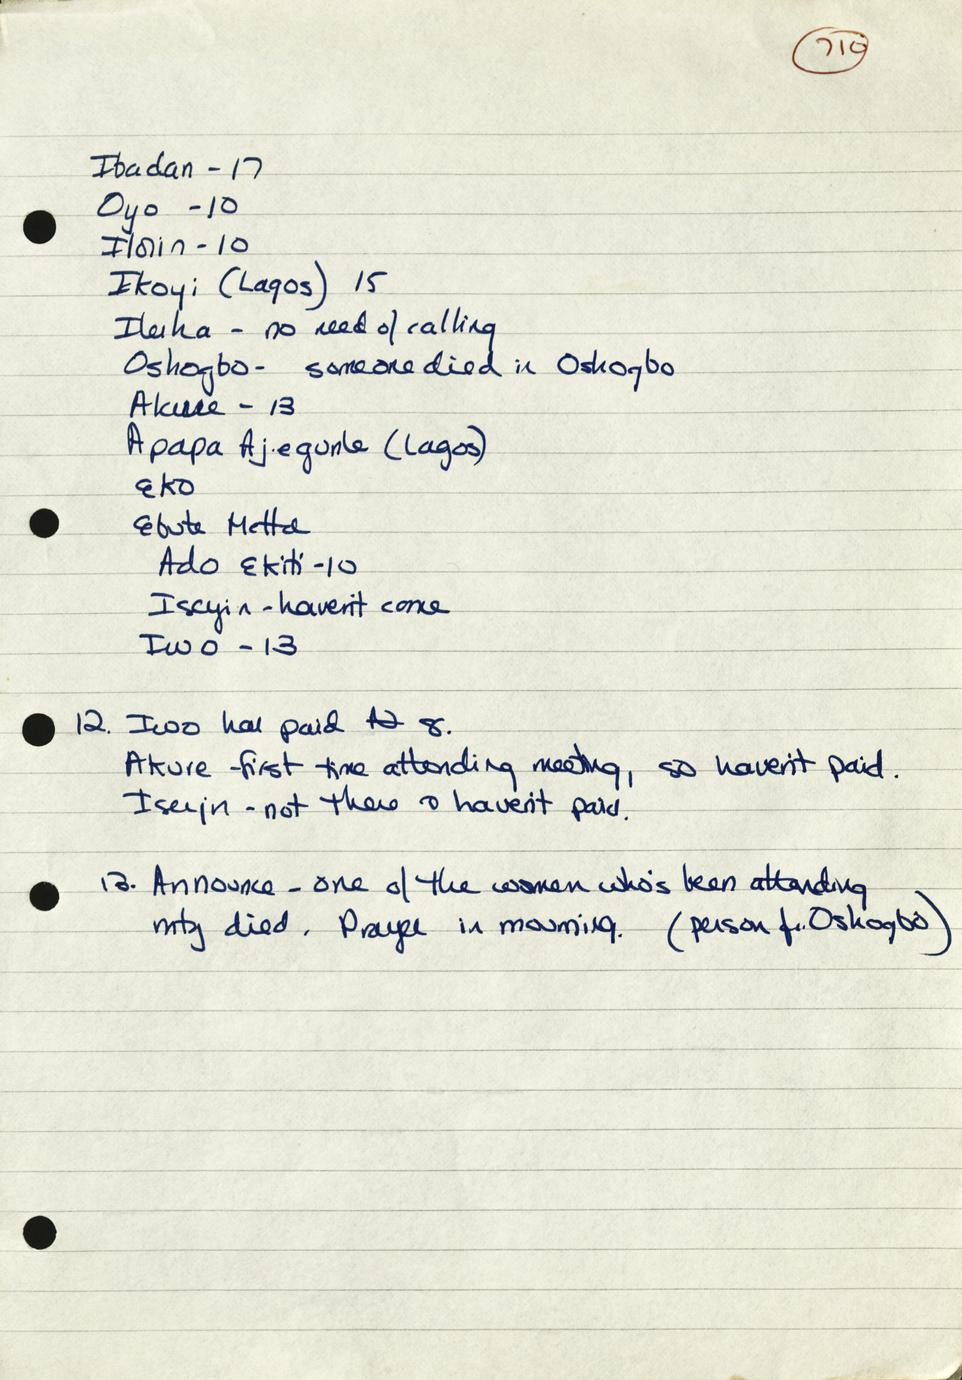 710
Ibadan - 17
Oyo - 10
Ilorin - 10
Ikoyi (Lagos) 15
Ilesha - no need of calling
Oshogbo - someone died in Oshogbo
Akure - 13
Apapa Ajegunle (Lagos)
Eko
Ebute Metta
Ado Ekiti - 10
Iseyin - haven't come
Iwo - 13
12. Iwo has paid N 8.
Akure - first time attending meeting, so haven't paid.
Iseyin - not there & haven't paid.
13. Announce - one of the women who's been attending
mtg died. Prayer in mourning. (person fr. Oshogbo)